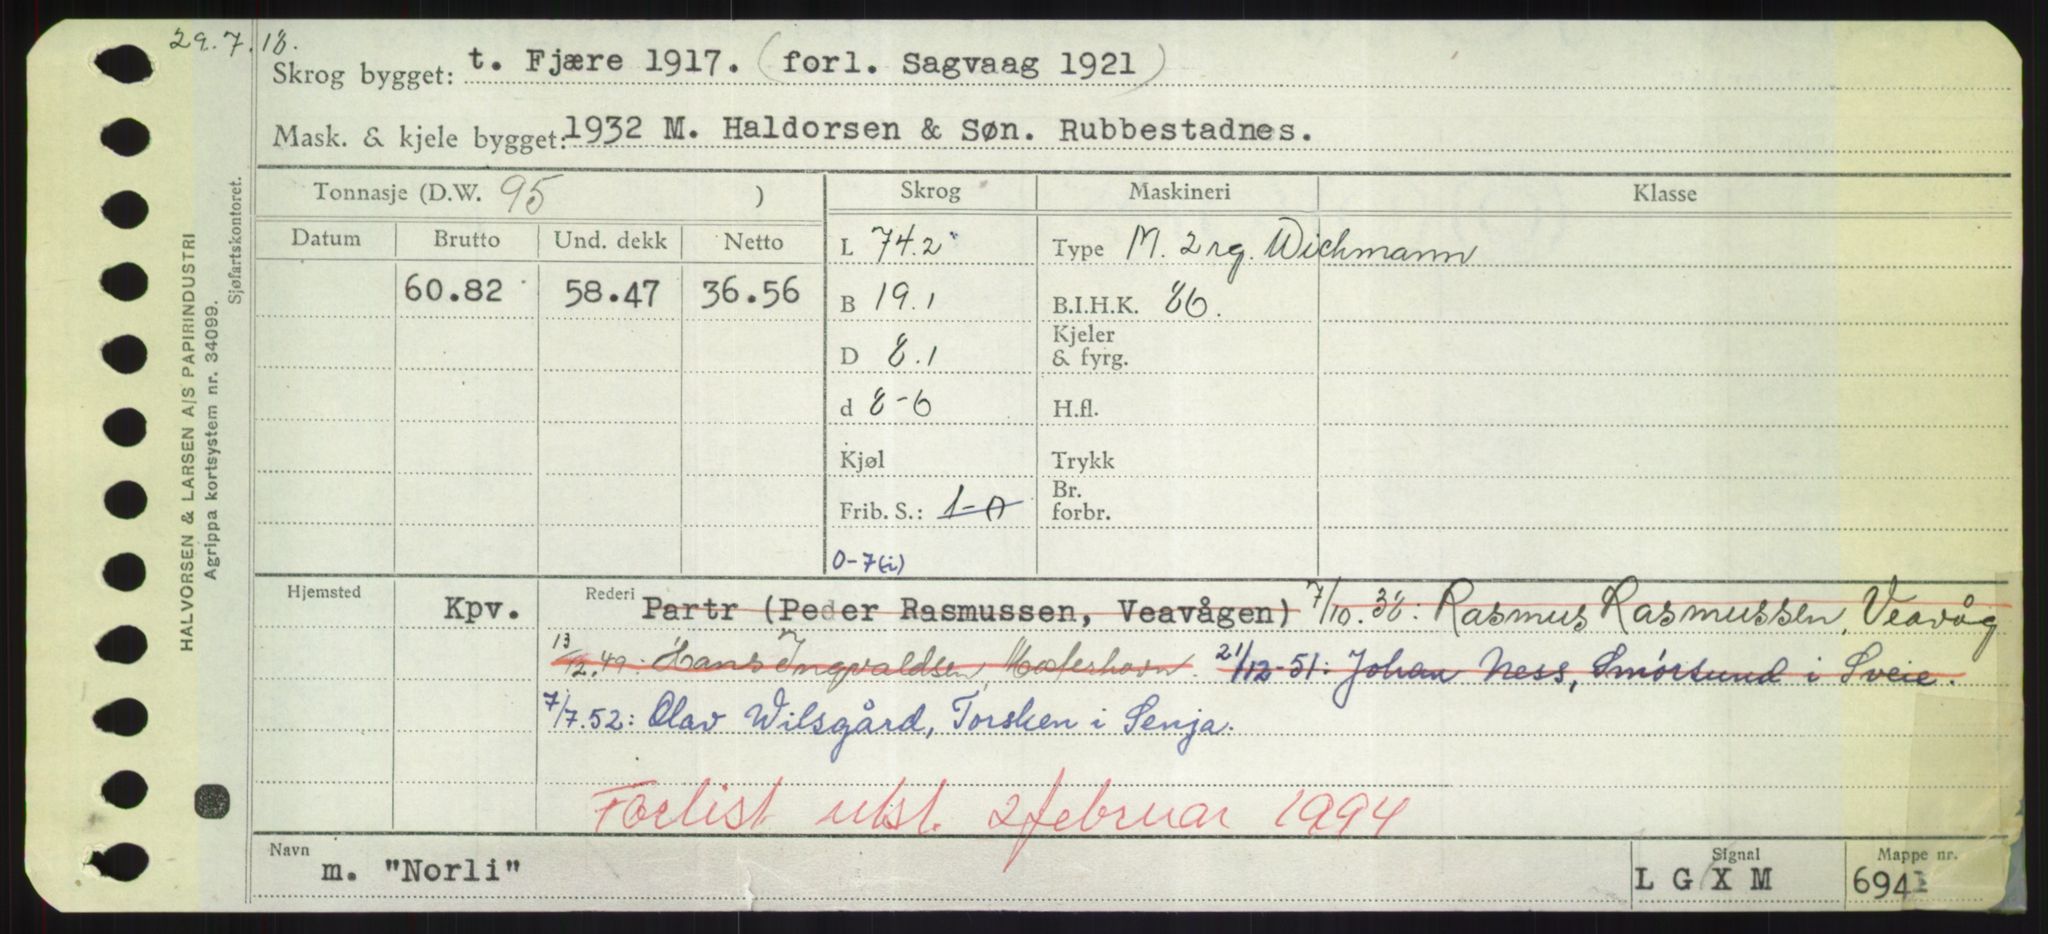 29.7.18.
Skrog bygget: t. Fjære 1917. (forl. Sagvaag 1921)
Mask. & kjele bygget: 1932 M. Haldorsen & Søn. Rubbestadnes.
HALVORSEN & LARSEN A/S PAPIRINDUSTRI
Agrippa kortsystem nr. 34099.
Sjøfartskontoret.
Tonnasje (D.W. 95 ) Skrog Maskineri Klasse
Datum Brutto Und. dekk Netto L 74.2 Type M. 2 rg. Wichmann
60.82 58.47 36.56 B 19.1 B.I.H.K. 86.
D 8.1 Kjeler & fyrg.
d 8-6 H.fl.
Kjøl Trykk
Frib. S.: 1-0 Br. forbr.
0-7(i)
Hjemsted Kpv. Rederi Partr (Peder Rasmussen, Veavågen) 7/10.38: Rasmus Rasmussen, Veavåg
13/12.49: Hans Ingvaldsen, Mosterhavn. 21/12-51: Johan Ness, Smörsund i Sveie.
7/7.52: Olav Wilsgård, Torsken i Senja.
Forlist utsl. 2 februar 1994
Navn m. "Norli" Signal L G X M Mappe nr. 694